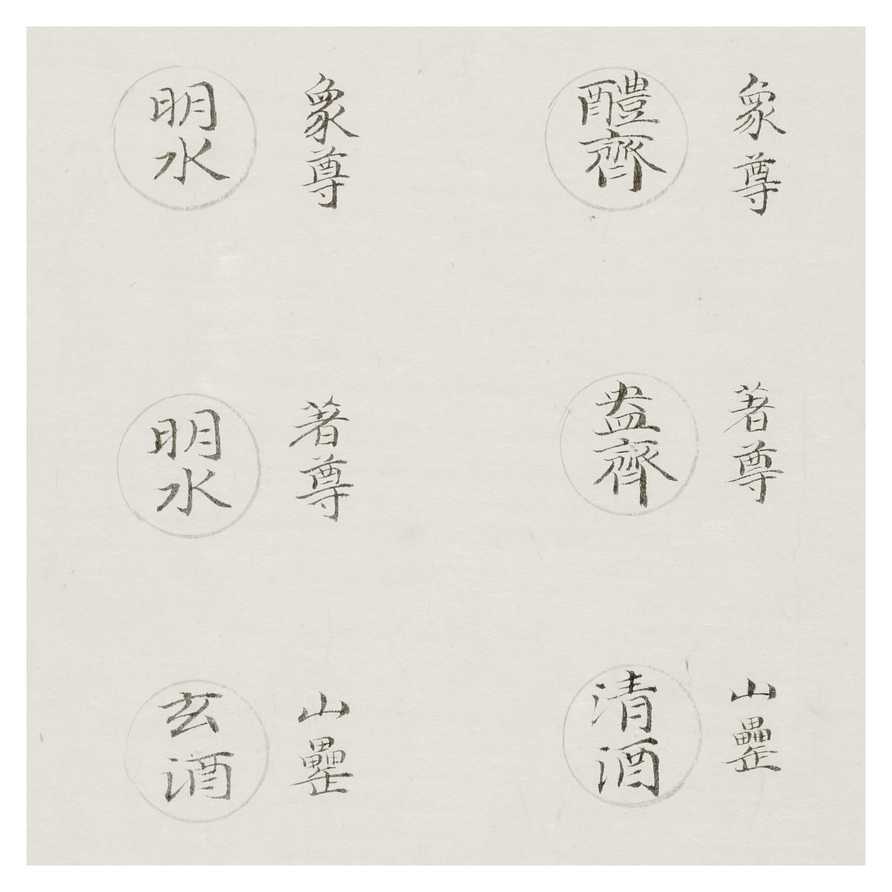 象尊
醴齊
象尊
明水
著尊
盎齊
著尊
明水
山罍
清酒
山罍
玄酒